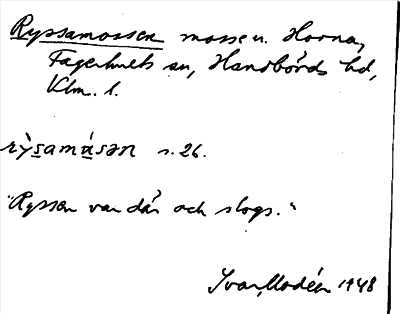 Ryssamossen mosse u. Horna,
Fagerhults sn, Handbörds hd,
Klm. l.
rỳsamåsən s. 26.
"Ryssen var där och slogs."
Ivar Modéer 1948